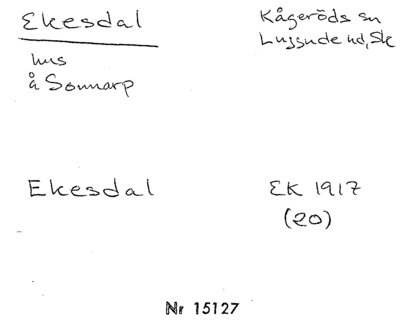 Ekesdal
Kågeröds sn
Luggude hd, Sk
hus
å Sonnarp
Ekesdal
EK 1917
(20)
Nr 15127